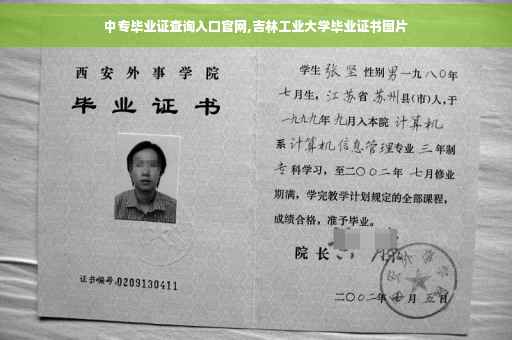 中专毕业证查询入口官网,吉林工业大学毕业证书图片
西安外事学院
毕业证书
证书编号:0209130411
学生 张坚 性别 男 一九八〇年
七月生, 江苏省 苏州县(市)人,于
一九九九年 九月入本院 计算机
系 计算机信息管理专业 三 年制
专科学习, 至二〇〇二年 七月修业
期满, 学完教学计划规定的全部课程,
成绩合格, 准予毕业。
院长
二〇〇二年 月五日